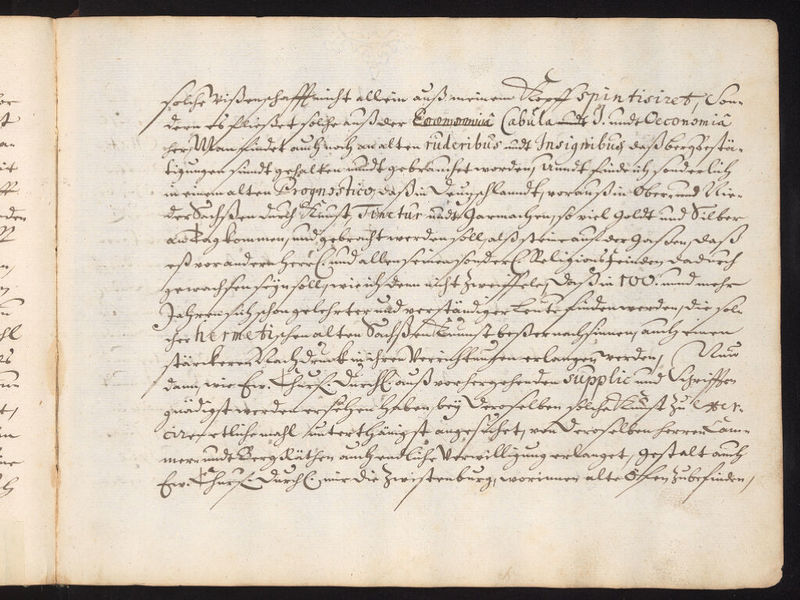 solche Wißenschafft nicht allein auß meinem Kopff spintisiret, Son-
dern es fließet solche auß der Cabula und J. undt Oeconomia
her, Man findet auch noch an alten ruderibus undt Insignibus, daß bergbestä-
tigungen sindt gehalten undt gebrauchet worden, Undt finde ich sonderlich
in einem alten Prognostico, daß in Deuzschlanndt, vorauß in Ober und Nie-
der Sachßen durch Kunst, Tinctur undt Garmachen, so viel Goldt und Silber
an Tag kommen, und gebracht werden soll, alß steine auf der Gaßen, daß
eß vor andern und allen seinen Religions feinden dadurch
gewachsen seyn soll, wie ich denn nicht zweiffele, daß in 100. und mehr
Jahren sich schon gelehrte und verständige Leute finden werden, die sol-
che hermetischen alten Sachßen Kunst beßer nachsinnen, auch einen
stärckeren Nachdruck in ihren Verrichtungen erlangen werden, Nun
dann, wie Ew. Churf. Durchl. auß vorhergehenden supplic und Schrifften
gnädigst werden ersehen haben, bey Deroselben solche Kunst zu exer-
ciren etliche mahl unterthänigst angesuchet, von Deroselben Herren Cam-
mer und Berg Räthen auch endliche Verwilligung erlanget, gestalt auch
Ew. Churf. Durchl. mir die Zwistenburg, worinnen alte Öfen zu befinden,